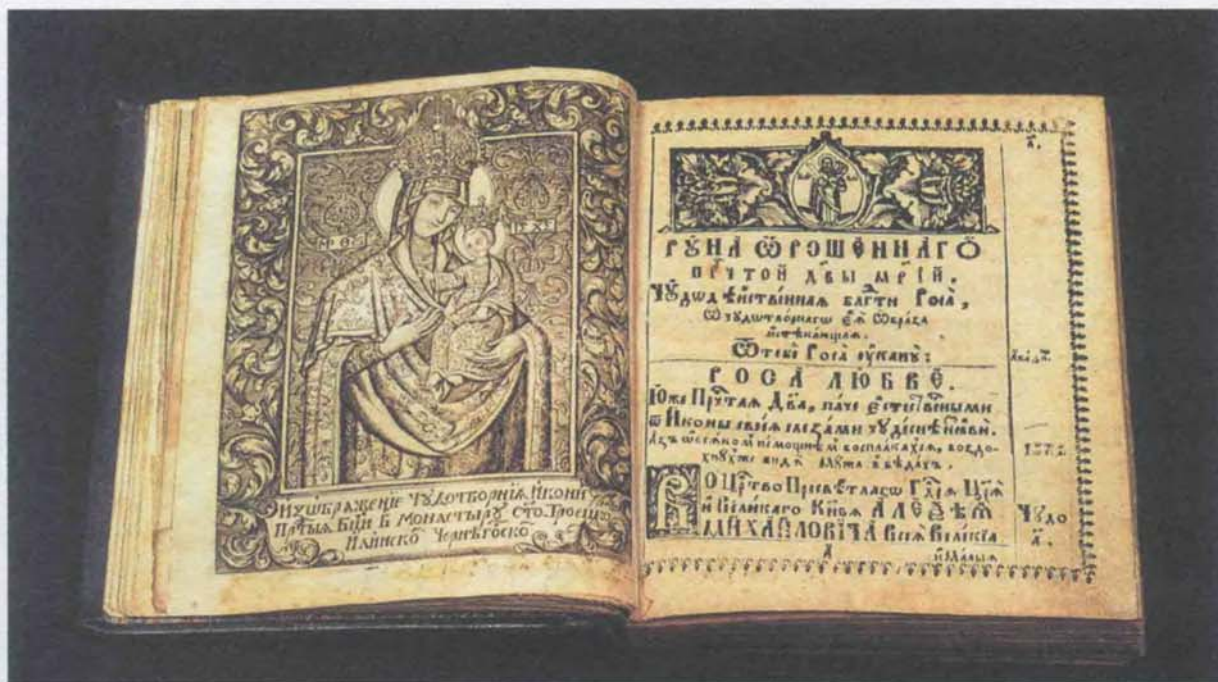 МР ѲУ
ІС ХС
Изѡбраженіе Чудотворнїѧ Икони
Пр҃тыѧ Бц҃и В Монастыру Ст҃о Троецко
Илинско Чернѣговско
РУНА Ѿ̀РОШЕННАГѠ
ПРЧ҃ТОЙ ДВ҃Ы МР҃ІЙ,
Чудѡдѣйственнаѧ блг҃ти Роса̀,
Ѿ чудѡтворнагѡ еѧ̀ Ѡбраза
истѣкающаѧ.
Ѿ тебе Роса̀
РОСА ЛЮБВЕ.
Юже Прч҃таѧ Дв҃а, паче естественными
ѿ Иконы своеѧ слезами чудеснѣ ꙗви.
во Цр҃тво Пресвѣтлагѡ Гд҃рѧ Цр҃ѧ
и Великаго Кн҃зѧ АЛЕѮЇѦ
МИХАЙЛОВИЧА Всеѧ Великїѧ
и Малыѧ
Чудо
а҃.